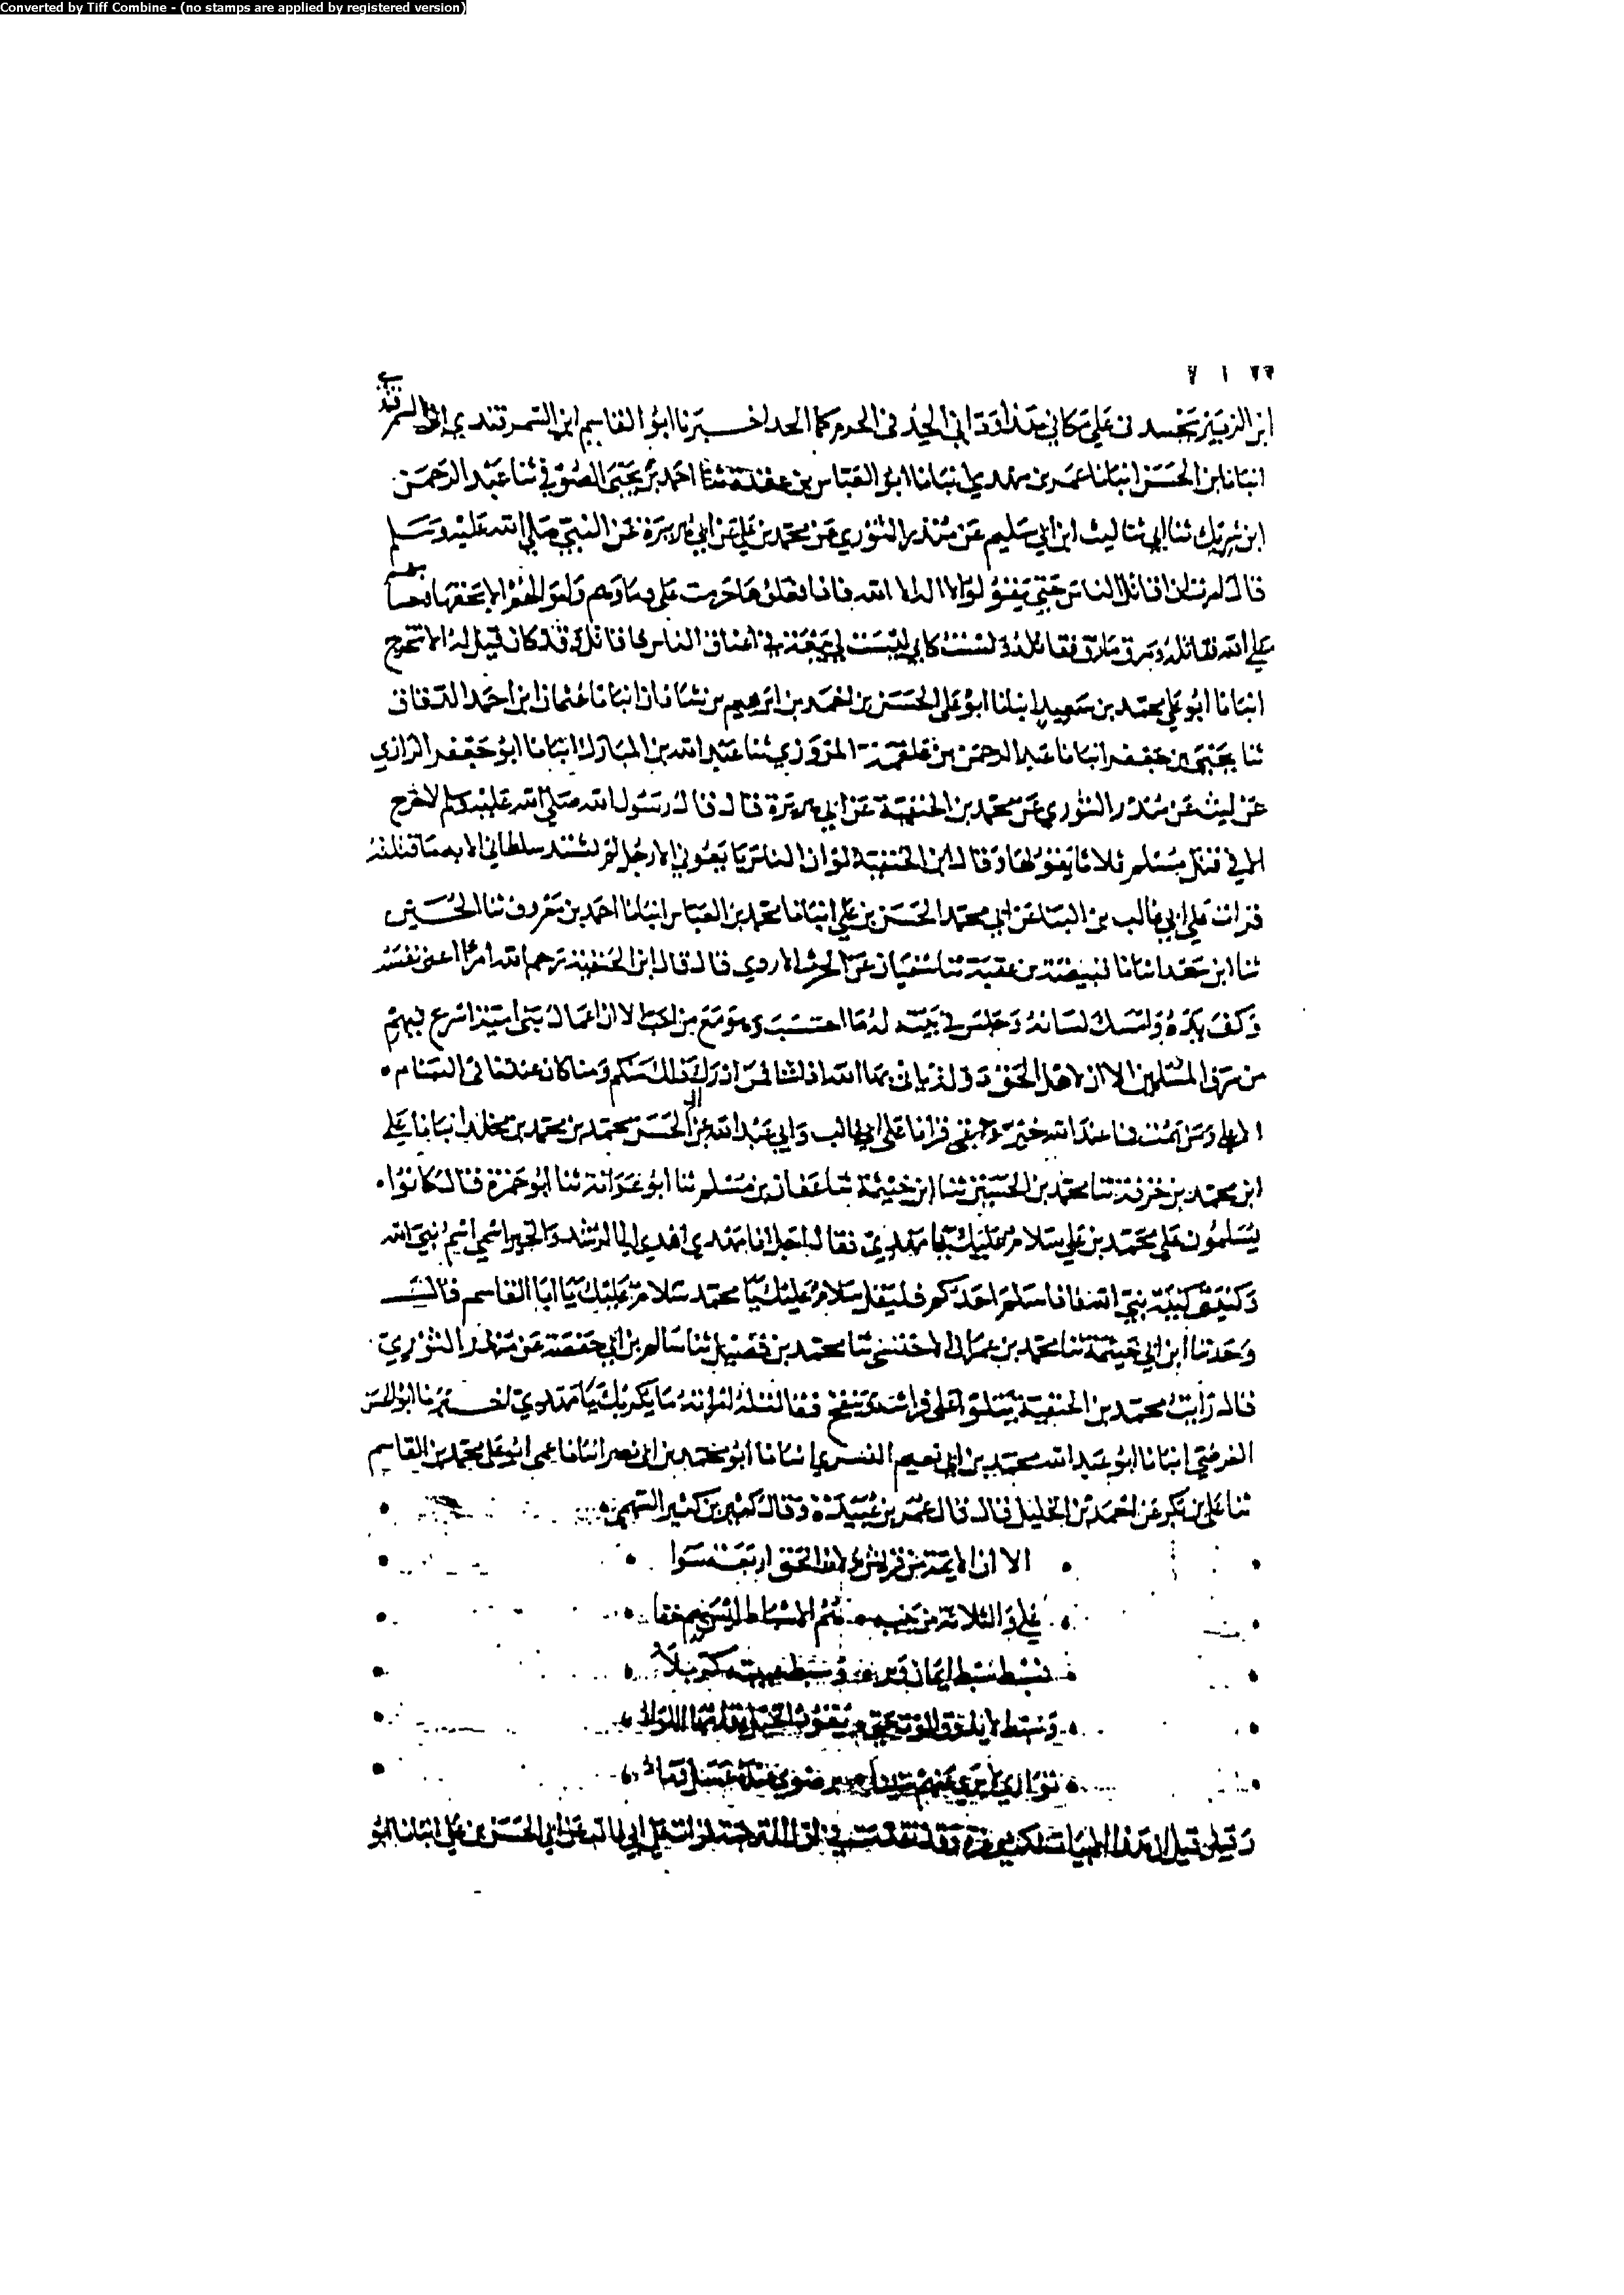 Converted by Tiff Combine - (no stamps are applied by registered version)
ابن الزبير يحسدنى على مكاني هذا ود انى الحد فى الحرم كما الحد اخبرنا ابو القاسم ابن السمرقندي
انبانا ابن الحسن انبانا عمر بن مهدي انبانا ابو العباس بن عقدة ثنا احمد بن يحيى الصوفي ثنا عبد الرحمن
ابن شريك ثنا ابي ثنا ليث ابن ابي سليم عن منذر الثوري عن محمد بن علي عن ابي هريرة عن النبي صلى الله عليه وسلم
قال امرت ان اقاتل الناس حتى يقولوا لا اله الا الله فاذا فعلوها حرمت علي دماوهم واموالهم الا بحقها وحسابهم
على الله فقال له رجل
انبانا ابو علي محمد بن سعيد انبانا ابو علي الحسن بن احمد بن ابرهيم بن شاذان انبانا عثمان ابن احمد الدقاق
ثنا يحيى بن جعفر انبانا عبد الرحمن بن علقمة المروزي ثنا عبد الله بن المبارك انبانا ابو جعفر الرازي
عن ليث عن منذر الثوري عن محمد بن الحنفية عن ابي هريرة قال قال رسول الله صلى الله عليه وسلم لا حرج
الا في قتل مسلم ثلاثا يقولها وقال ابن الحنفية لو ان الناس بايعوني الا رجل لم يشتد سلطاني الا به ما قتلته
قرات على ابي غالب بن البنا عن ابي محمد الحسن بن علي انبانا محمد بن العباس انبانا احمد بن معروف ثنا الحسين
ثنا ابن سعد انبانا قبيصة بن عقبة ثنا سفيان عن الحرث الازدي قال قال ابن الحنفية رحم الله امرا اغنى نفسه
وكف يده وامسك لسانه وجلس في بيته له ما احتسب وهو مع من احب الا ان اعمال بنى امية اسرع فيهم
من سيوف المسلمين الا ان لاهل الحق دولة ياتى بها الله اذا شا فمن ادرك ذلك منكم ومنا كان عندنا فى السنام
الاعلى ومن يمت فما عند الله خير وابقى قرانا على ابي غالب وابي عبد الله عن ابي الحسن محمد بن محمد بن مخلد انبانا علي
ابن محمد بن خزفة ثنا محمد بن الحسين ثنا ابن ابي خيثمة ثنا عفان بن مسلم ثنا ابو عوانة ثنا ابو جمرة قال كانوا
يسلمون على محمد بن علي سلام عليك يا مهدي فقال اجل انا مهدي اهدي الى الرشد والخير اسمي اسم نبي الله
وكنيتى كنية نبي الله فاذا سلم احدكم فليقل سلام عليك يا محمد سلام عليك يا ابا القاسم قال
وحدثنا ابن ابي خيثمة ثنا محمد بن عمران الاخنسى ثنا محمد بن فضيل ثنا سالم بن ابي حفصة عن منذر الثوري
قال رايت محمد بن الحنفية يتلوا على فراشه وينفخ فقالت له امراته ما يكربك يا مهدي اخبرنا ابو الحسن
الفرضي انبانا ابو عبد الله محمد بن ابي نعيم النسوي انبانا ابو محمد بن ابى نصر انبانا عمى ابو على محمد بن القاسم
ثنا علي بن بكر عن احمد بن الخليل قال قال عمر بن عبيدة وقال كثير بن كثير السهمى
الا ان الايمة من قريش ولاة الحق اربعة سوا
علي والثلاثة من بنيه هم الاسباط ليس بهم خفا
فسبط سبط ايمان وبر وسبط غيبته كربلا
وسبط لا يذوق الموت حتى يقود الخيل يقدمها اللوا
توارى لا يرى عنهم زمانا برضوى عنده عسل وما
وقيل ان هذه الابيات لكثير عزة وقد تقدمت قرات على ابي غالب عن ابي الحسن بن علي انبانا ابو